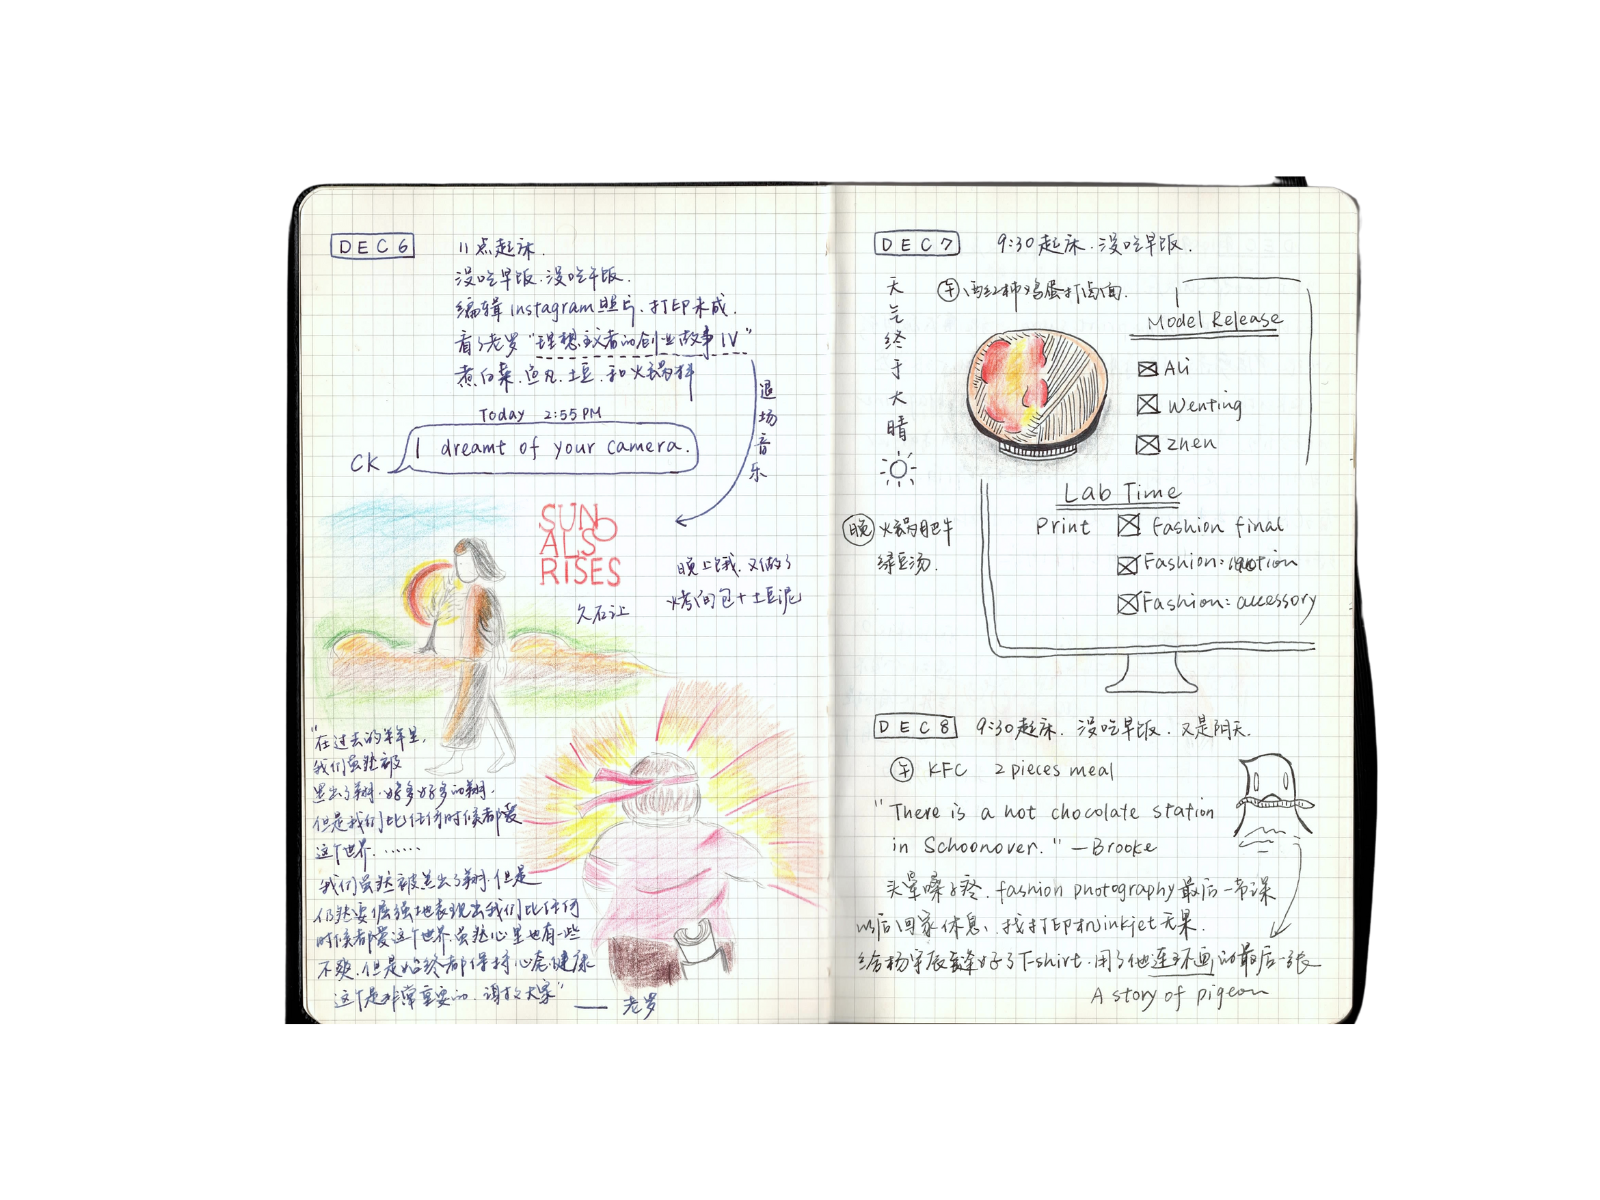 DEC 6
11点起床.
没吃早饭.没吃午饭.
编辑instagram照片.打印未成.
看了老罗“理想主义者的创业故事 IV”
煮白菜.鱼丸.土豆.和火锅料
退场音乐
Today 2:55PM
CK
I dreamt of your camera.
SUN
ALSO
RISES
久石让
晚上饿.又做了
烤面包+土豆泥
“在过去的半年里,
我们虽然被
黑出了翔.好多好多的翔.
但是我们比任何时候都爱
这个世界.……
我们虽然被黑出了翔.但是
仍然要倔强地表现出我们比任何
时候都爱这个世界.虽然心里也有一些
不爽.但是始终都保持心态健康
这个是非常重要的.谢谢大家”
—— 老罗
DEC 7
9:30起床.没吃早饭.
天气终于大晴
午 西红柿鸡蛋打卤面.
Model Release
Ali
Wenting
Zhen
晚 火锅肥牛
绿豆汤.
Lab Time
Print Fashion final
Fashion: motion
Fashion: accessory
DEC 8
9:30起床.没吃早饭.又是阴天.
午 KFC 2 pieces meal
"There is a hot chocolate station
in Schoonover." — Brooke
头晕嗓子疼.fashion photography最后一节课
以后回家休息、找打印机inkjet无果.
给杨宇辰 好了T-shirt.用了他连环画的最后一张
A story of pigeon